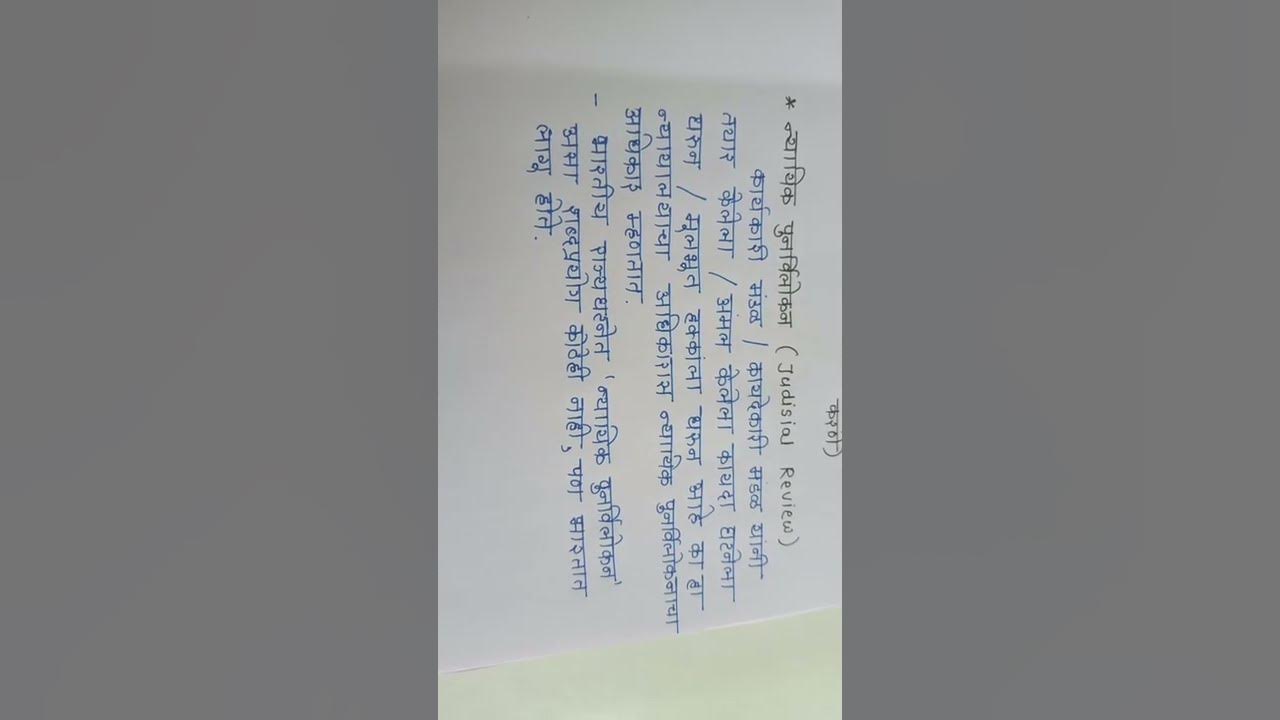 करणे)
* न्यायिक पुनर्विलोकन (Judisial Review)
कार्यकारी मंडळ / कायदेकारी मंडळ यांनी
तयार केलेला / अंमल केलेला कायदा घटनेला
धरुन / मूलभूत हक्कांना धरुन आहे का हा
न्यायालयाचा अधिकारास न्यायिक पुनर्विलोकनाचा
अधिकार म्हणतात.
- भारतीय राज्यघटनेत 'न्यायिक पुनर्विलोकन'
असा शब्दप्रयोग कोठेही नाही, पण भारतात
लागू होते.